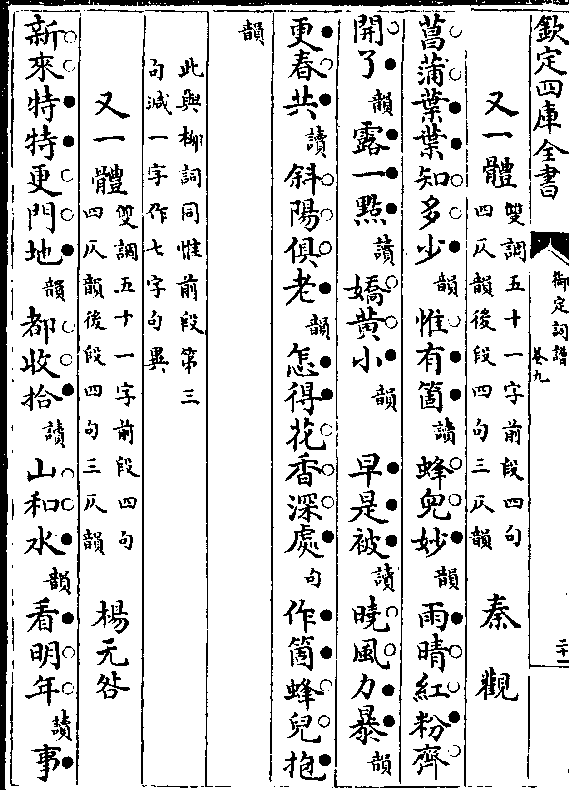 欽定四庫全書
御定詞譜
卷九
二十一
又一體 雙調五十一字前段四句四仄韻後段四句三仄韻 秦觀
菖蒲葉葉知多少韻惟有箇讀蜂兒妙韻雨晴紅粉齊
開了韻露一點讀嬌黃小韻 早是被讀曉風力暴韻
更春共讀斜陽俱老韻怎得花香深處句作箇蜂兒抱
韻
此與柳詞同惟前段第三句減一字作七字句異
又一體 雙調五十一字前段四句四仄韻後段四句三仄韻 楊元咎
新來特特更門地韻都收拾讀山和水韻看明年讀事